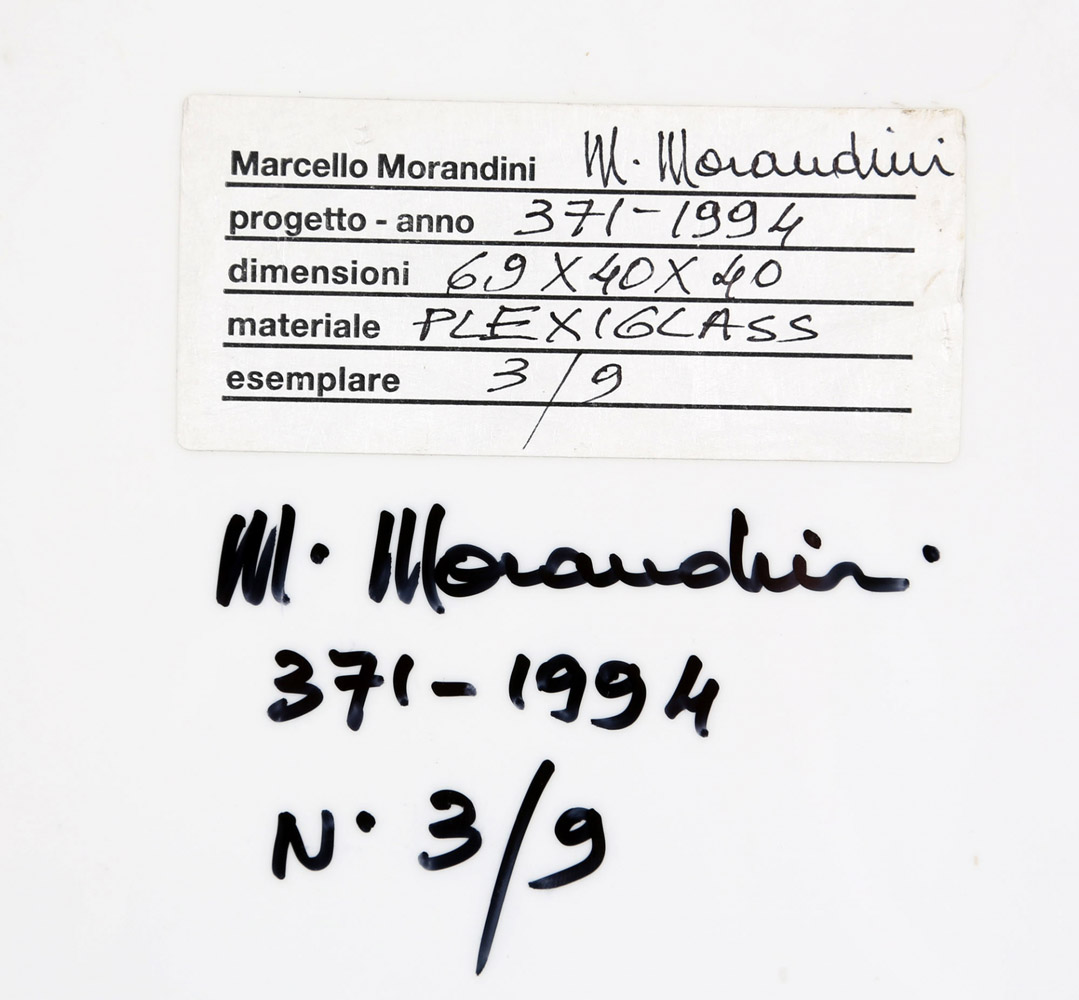 Marcello Morandini M. Morandini
progetto - anno 371-1994
dimensioni 69X40X40
materiale PLEXIGLASS
esemplare 3/9
M. Morandini
371-1994
N. 3/9